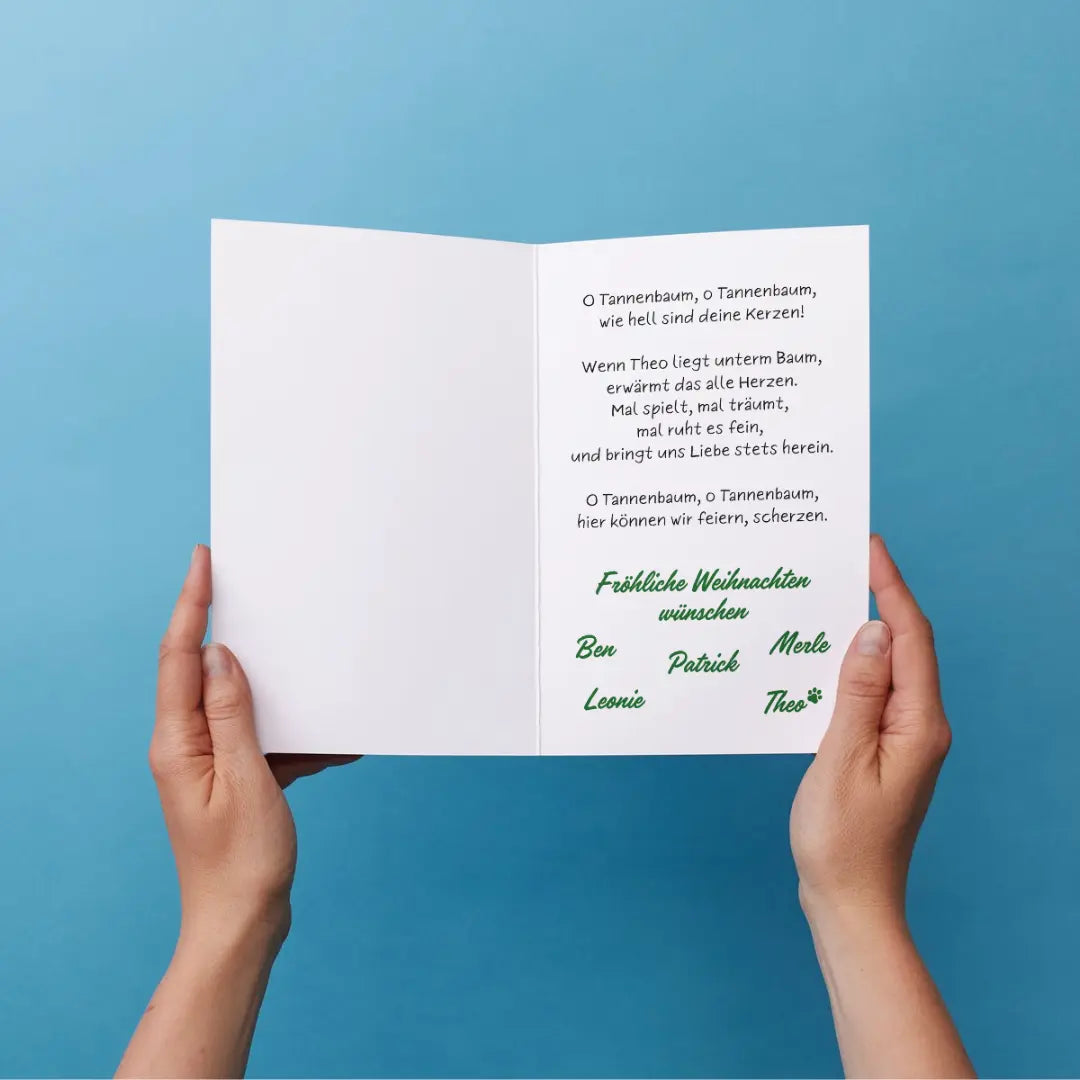 O Tannenbaum, o Tannenbaum,
wie hell sind deine Kerzen!
Wenn Theo liegt unterm Baum,
erwärmt das alle Herzen.
Mal spielt, mal träumt,
mal ruht es fein,
und bringt uns Liebe stets herein.
O Tannenbaum, o Tannenbaum,
hier können wir feiern, scherzen.
Fröhliche Weihnachten
wünschen
Ben
Patrick
Merle
Leonie
Theo